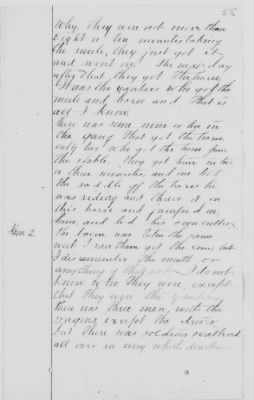 55
Why, they were not more than
eight or ten minutes taking
the mule, they just got it
and went off. The next day
after that they got the horse.
It was the yankees who got the
mule and horse and that is
all I know.
There was some nine or ten in
the gang that got the horse,
only two who got the horse from
the stable. They got him in two
or three minutes, and one took
the saddle off the horse he
was riding and threw it on
this horse and jumped on
him, and led his own
Item 2.
the bacon was taken the same
I saw them get the corn, but
I disremember the month or
anything of that sort. I do not
know who they were, except
that they were the yankees
There was three men, with the
wagons except the driver
but there was soldiers scattered
all over in every which direction